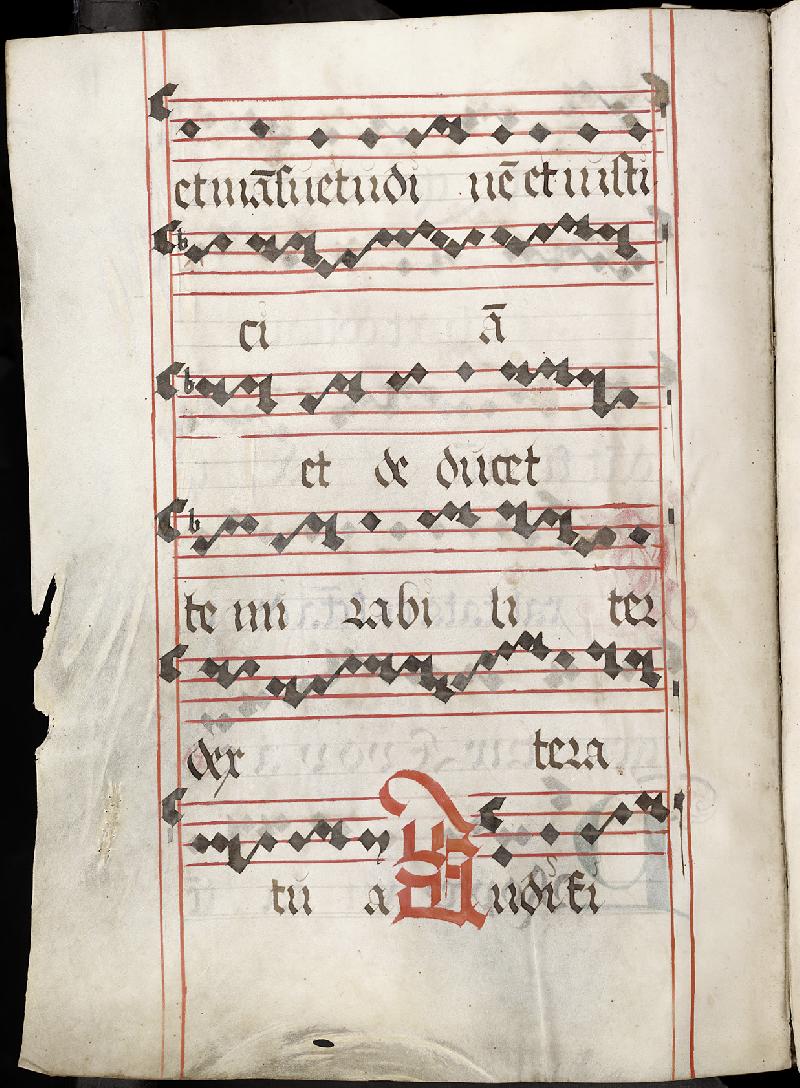 et mā suetudi nē et iusti
ci ā
et de ducet
te mi rabi li ter
dex tera
tu a Audi fi